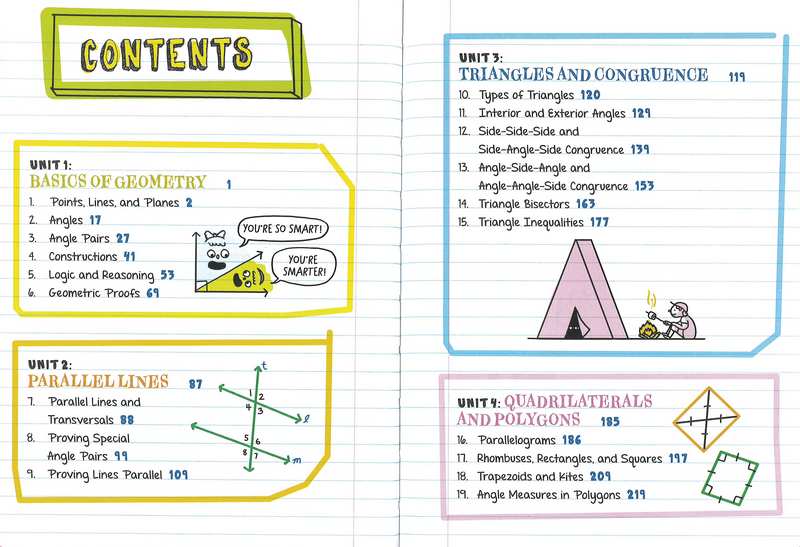 CONTENTS
UNIT 1:
BASICS OF GEOMETRY 1
1. Points, Lines, and Planes 2
2. Angles 17
3. Angle Pairs 27
4. Constructions 41
5. Logic and Reasoning 53
6. Geometric Proofs 69
YOU'RE SO SMART!
YOU'RE
SMARTER!
UNIT 2:
PARALLEL LINES 87
7. Parallel Lines and
Transversals 88
8. Proving Special
Angle Pairs 99
9. Proving Lines Parallel 109
t
1 2
4 3
l
5 6
8 7
m
UNIT 3:
TRIANGLES AND CONGRUENCE 119
10. Types of Triangles 120
11. Interior and Exterior Angles 129
12. Side-Side-Side and
Side-Angle-Side Congruence 139
13. Angle-Side-Angle and
Angle-Angle-Side Congruence 153
14. Triangle Bisectors 163
15. Triangle Inequalities 177
UNIT 4: QUADRILATERALS
AND POLYGONS 185
16. Parallelograms 186
17. Rhombuses, Rectangles, and Squares 197
18. Trapezoids and Kites 209
19. Angle Measures in Polygons 219